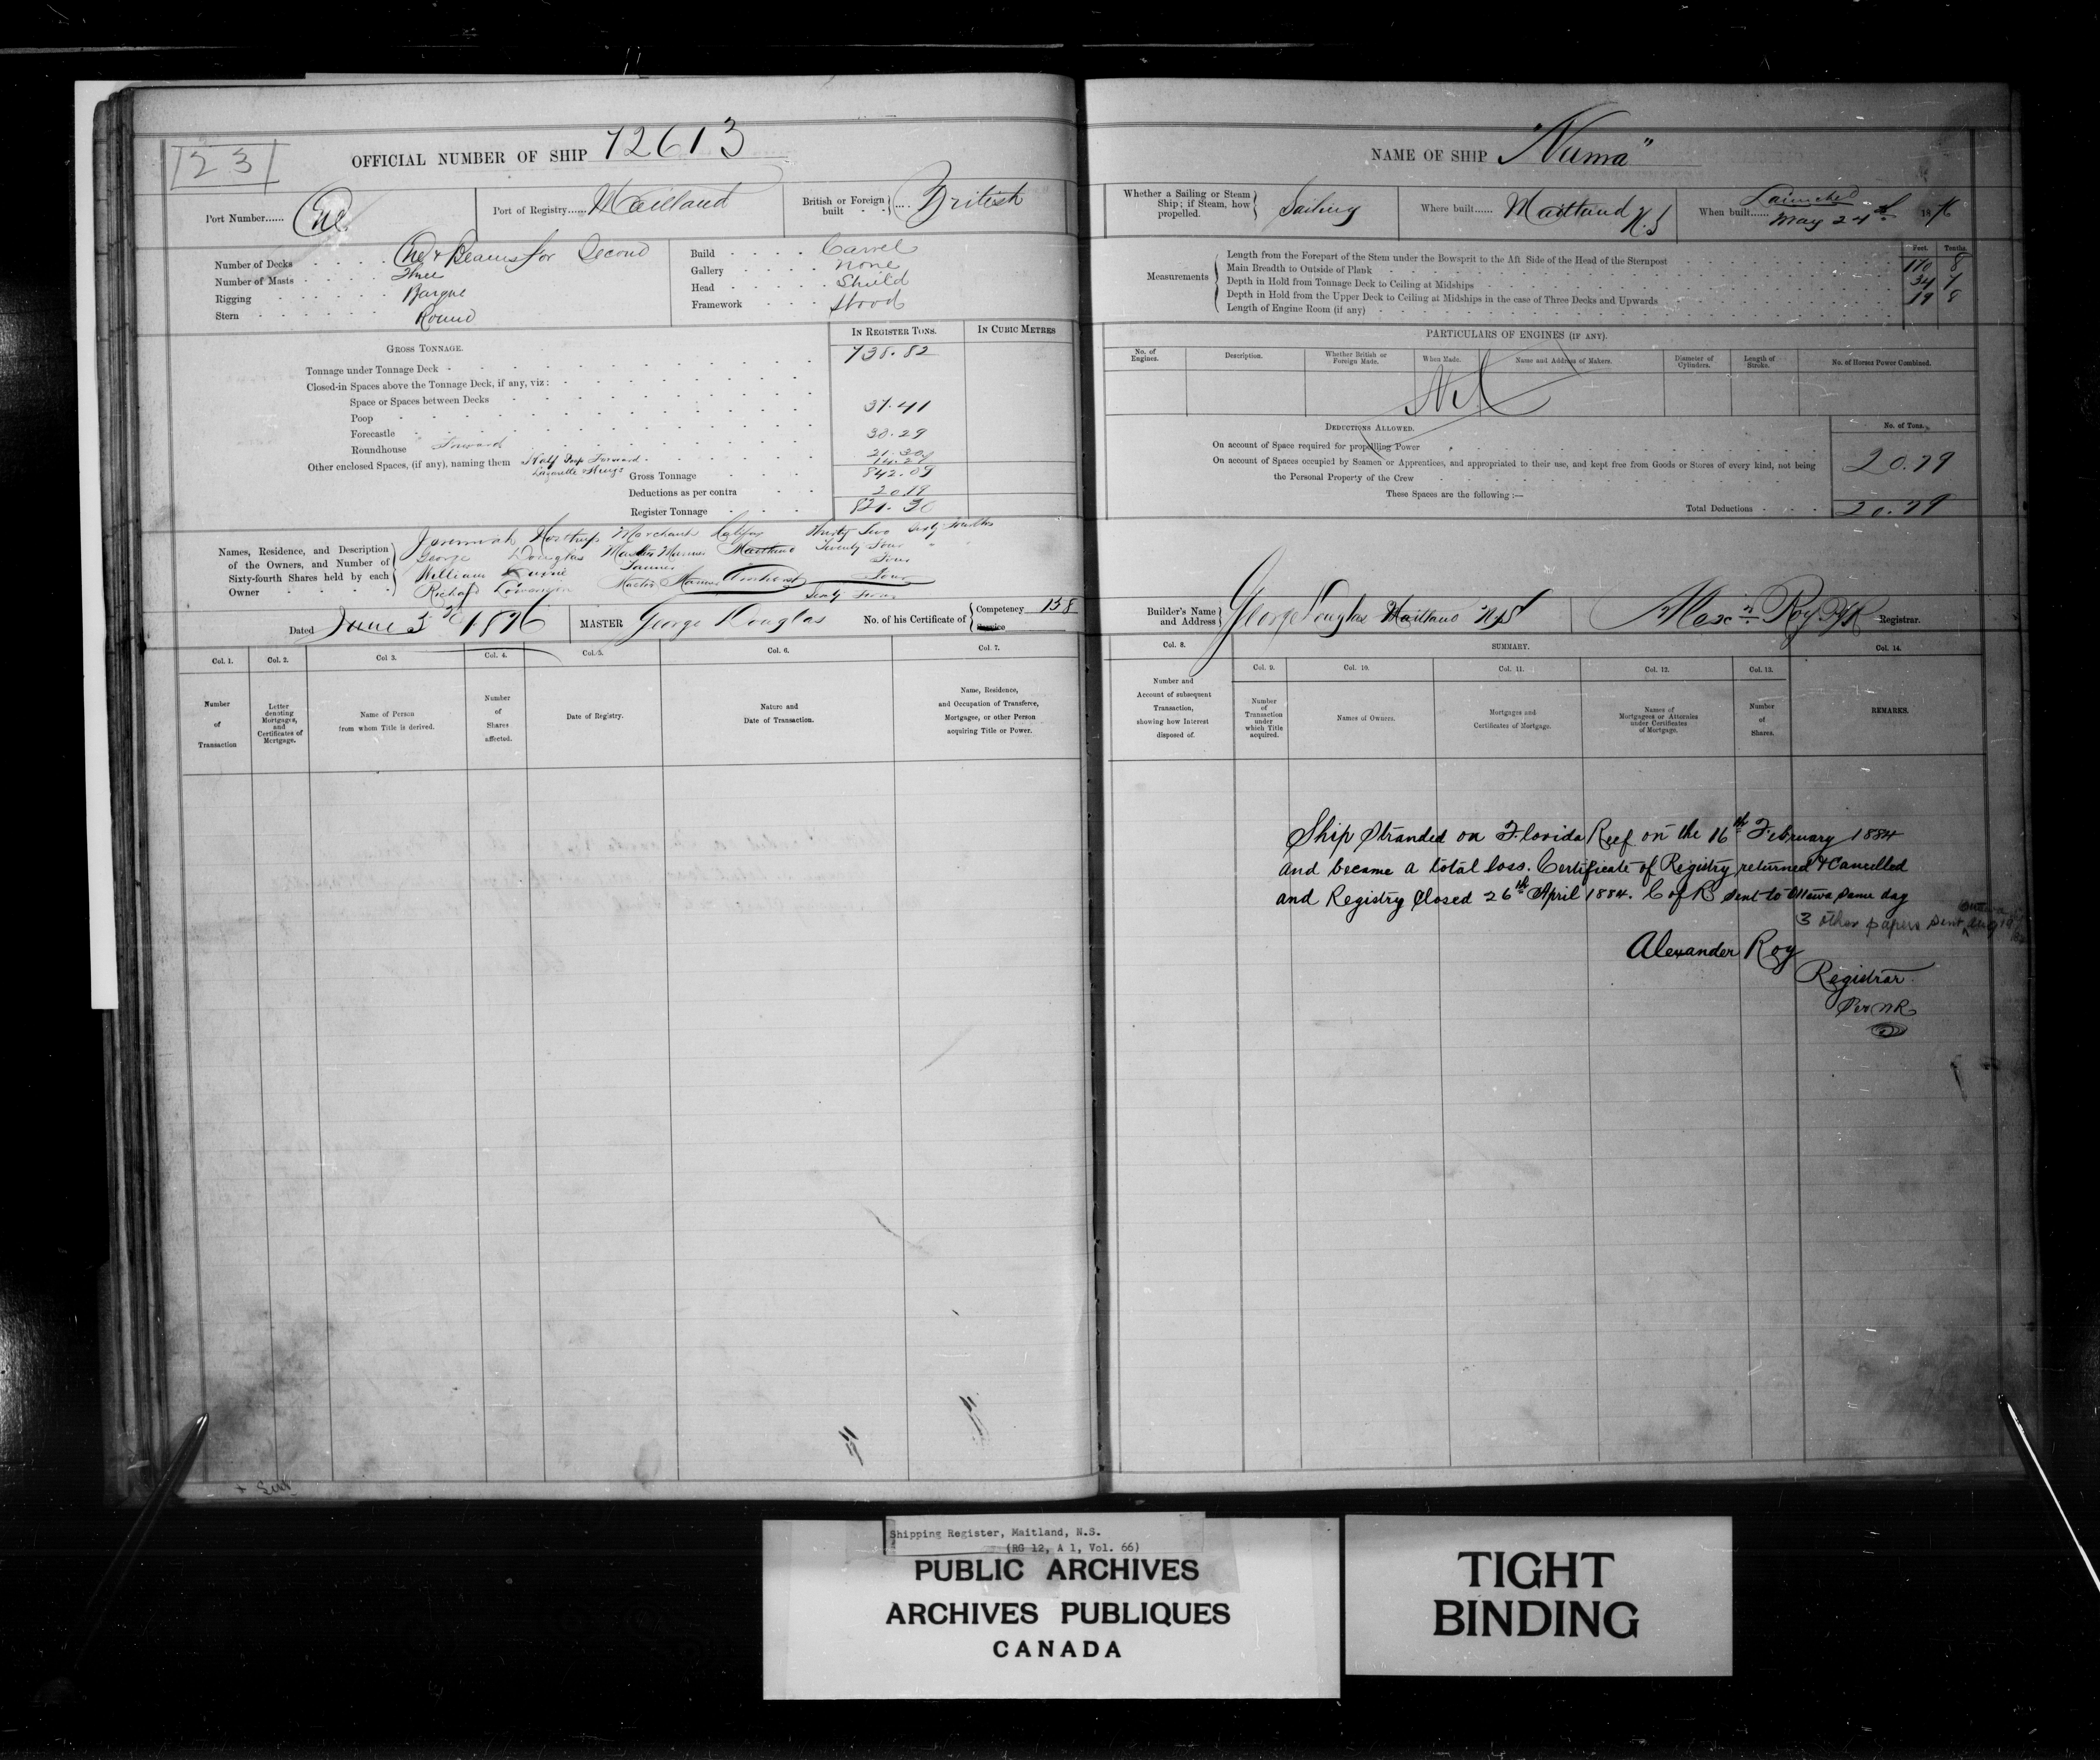 23
OFFICIAL NUMBER OF SHIP 72613
Port Number...... One
Port of Registry...... Maitland
British or Foreign built .... British
Number of Decks One & Beams for Second
Number of Masts Three
Rigging Barque
Stern Round
Build Carvel
Gallery None
Head Shield
Framework Wood
IN REGISTER TONS.
IN CUBIC METRES
GROSS TONNAGE.
Tonnage under Tonnage Deck 738.82
Closed-in Spaces above the Tonnage Deck, if any, viz:
Space or Spaces between Decks
Poop 37.41
Forecastle
Roundhouse Forward 30.29
Other enclosed Spaces, (if any), naming them Half Deck Forward
Lazarette
Gross Tonnage 842.09
Deductions as per contra 20.79
Register Tonnage 821.30
Names, Residence, and Description of the Owners, and Number of Sixty-fourth Shares held by each Owner
Jeremiah Northup Merchant Halifax Thirty Two Sixty Fourths
George Douglas Master Mariner Maitland Twenty Four " "
William Tanner Four
Richard Master Mariner Amherst Four
Sixty Four
Dated June 3rd 1876
MASTER George Douglas
No. of his Certificate of Competency 158
Service
Col. 1.
Col. 2.
Col 3.
Col. 4.
Col. 5.
Col. 6.
Col. 7.
Number of Transaction
Letter denoting Mortgages, and Certificates of Mortgage.
Name of Person from whom Title is derived.
Number of Shares affected.
Date of Registry.
Nature and Date of Transaction.
Name, Residence, and Occupation of Transferee, Mortgagee, or other Person acquiring Title or Power.
NAME OF SHIP "Numa"
Whether a Sailing or Steam Ship; if Steam, how propelled. Sailing
Where built...... Maitland N.S
When built...... Launched May 24th 1876
Measurements
Feet. Tenths.
Length from the Forepart of the Stem under the Bowsprit to the Aft Side of the Head of the Sternpost 170 8
Main Breadth to Outside of Plank 34 7
Depth in Hold from Tonnage Deck to Ceiling at Midships 19 8
Depth in Hold from the Upper Deck to Ceiling at Midships in the case of Three Decks and Upwards
Length of Engine Room (if any)
PARTICULARS OF ENGINES (IF ANY).
No. of Engines.
Description.
Whether British or Foreign Made.
When Made.
Name and Address of Makers.
Diameter of Cylinders.
Length of Stroke.
No. of Horses Power Combined.
Nil
DEDUCTIONS ALLOWED.
No. of Tons.
On account of Space required for propelling Power
On account of Spaces occupied by Seamen or Apprentices, and appropriated to their use, and kept free from Goods or Stores of every kind, not being
the Personal Property of the Crew 20.79
These Spaces are the following :—
Total Deductions 20.79
Builder's Name and Address George Douglas Maitland N.S
Alexr. Roy Registrar.
Col. 8.
SUMMARY.
Col. 14.
Col. 9.
Col. 10.
Col. 11.
Col. 12.
Col. 13.
Number and Account of subsequent Transaction, showing how Interest disposed of.
Number of Transaction under which Title acquired.
Names of Owners.
Mortgages and Certificates of Mortgage.
Names of Mortgagees or Attornies under Certificates of Mortgage.
Number of Shares.
REMARKS.
Ship Stranded on Florida Reef on the 16th February 1884
and became a total loss. Certificate of Registry returned & Cancelled
and Registry Closed 26th April 1884. C of R sent to Ottawa same day
3 other papers sent Ottawa Aug 19
Alexander Roy
Registrar
Per NR
Shipping Register, Maitland, N.S.
(RG 12, A 1, Vol. 66)
PUBLIC ARCHIVES
ARCHIVES PUBLIQUES
CANADA
TIGHT
BINDING